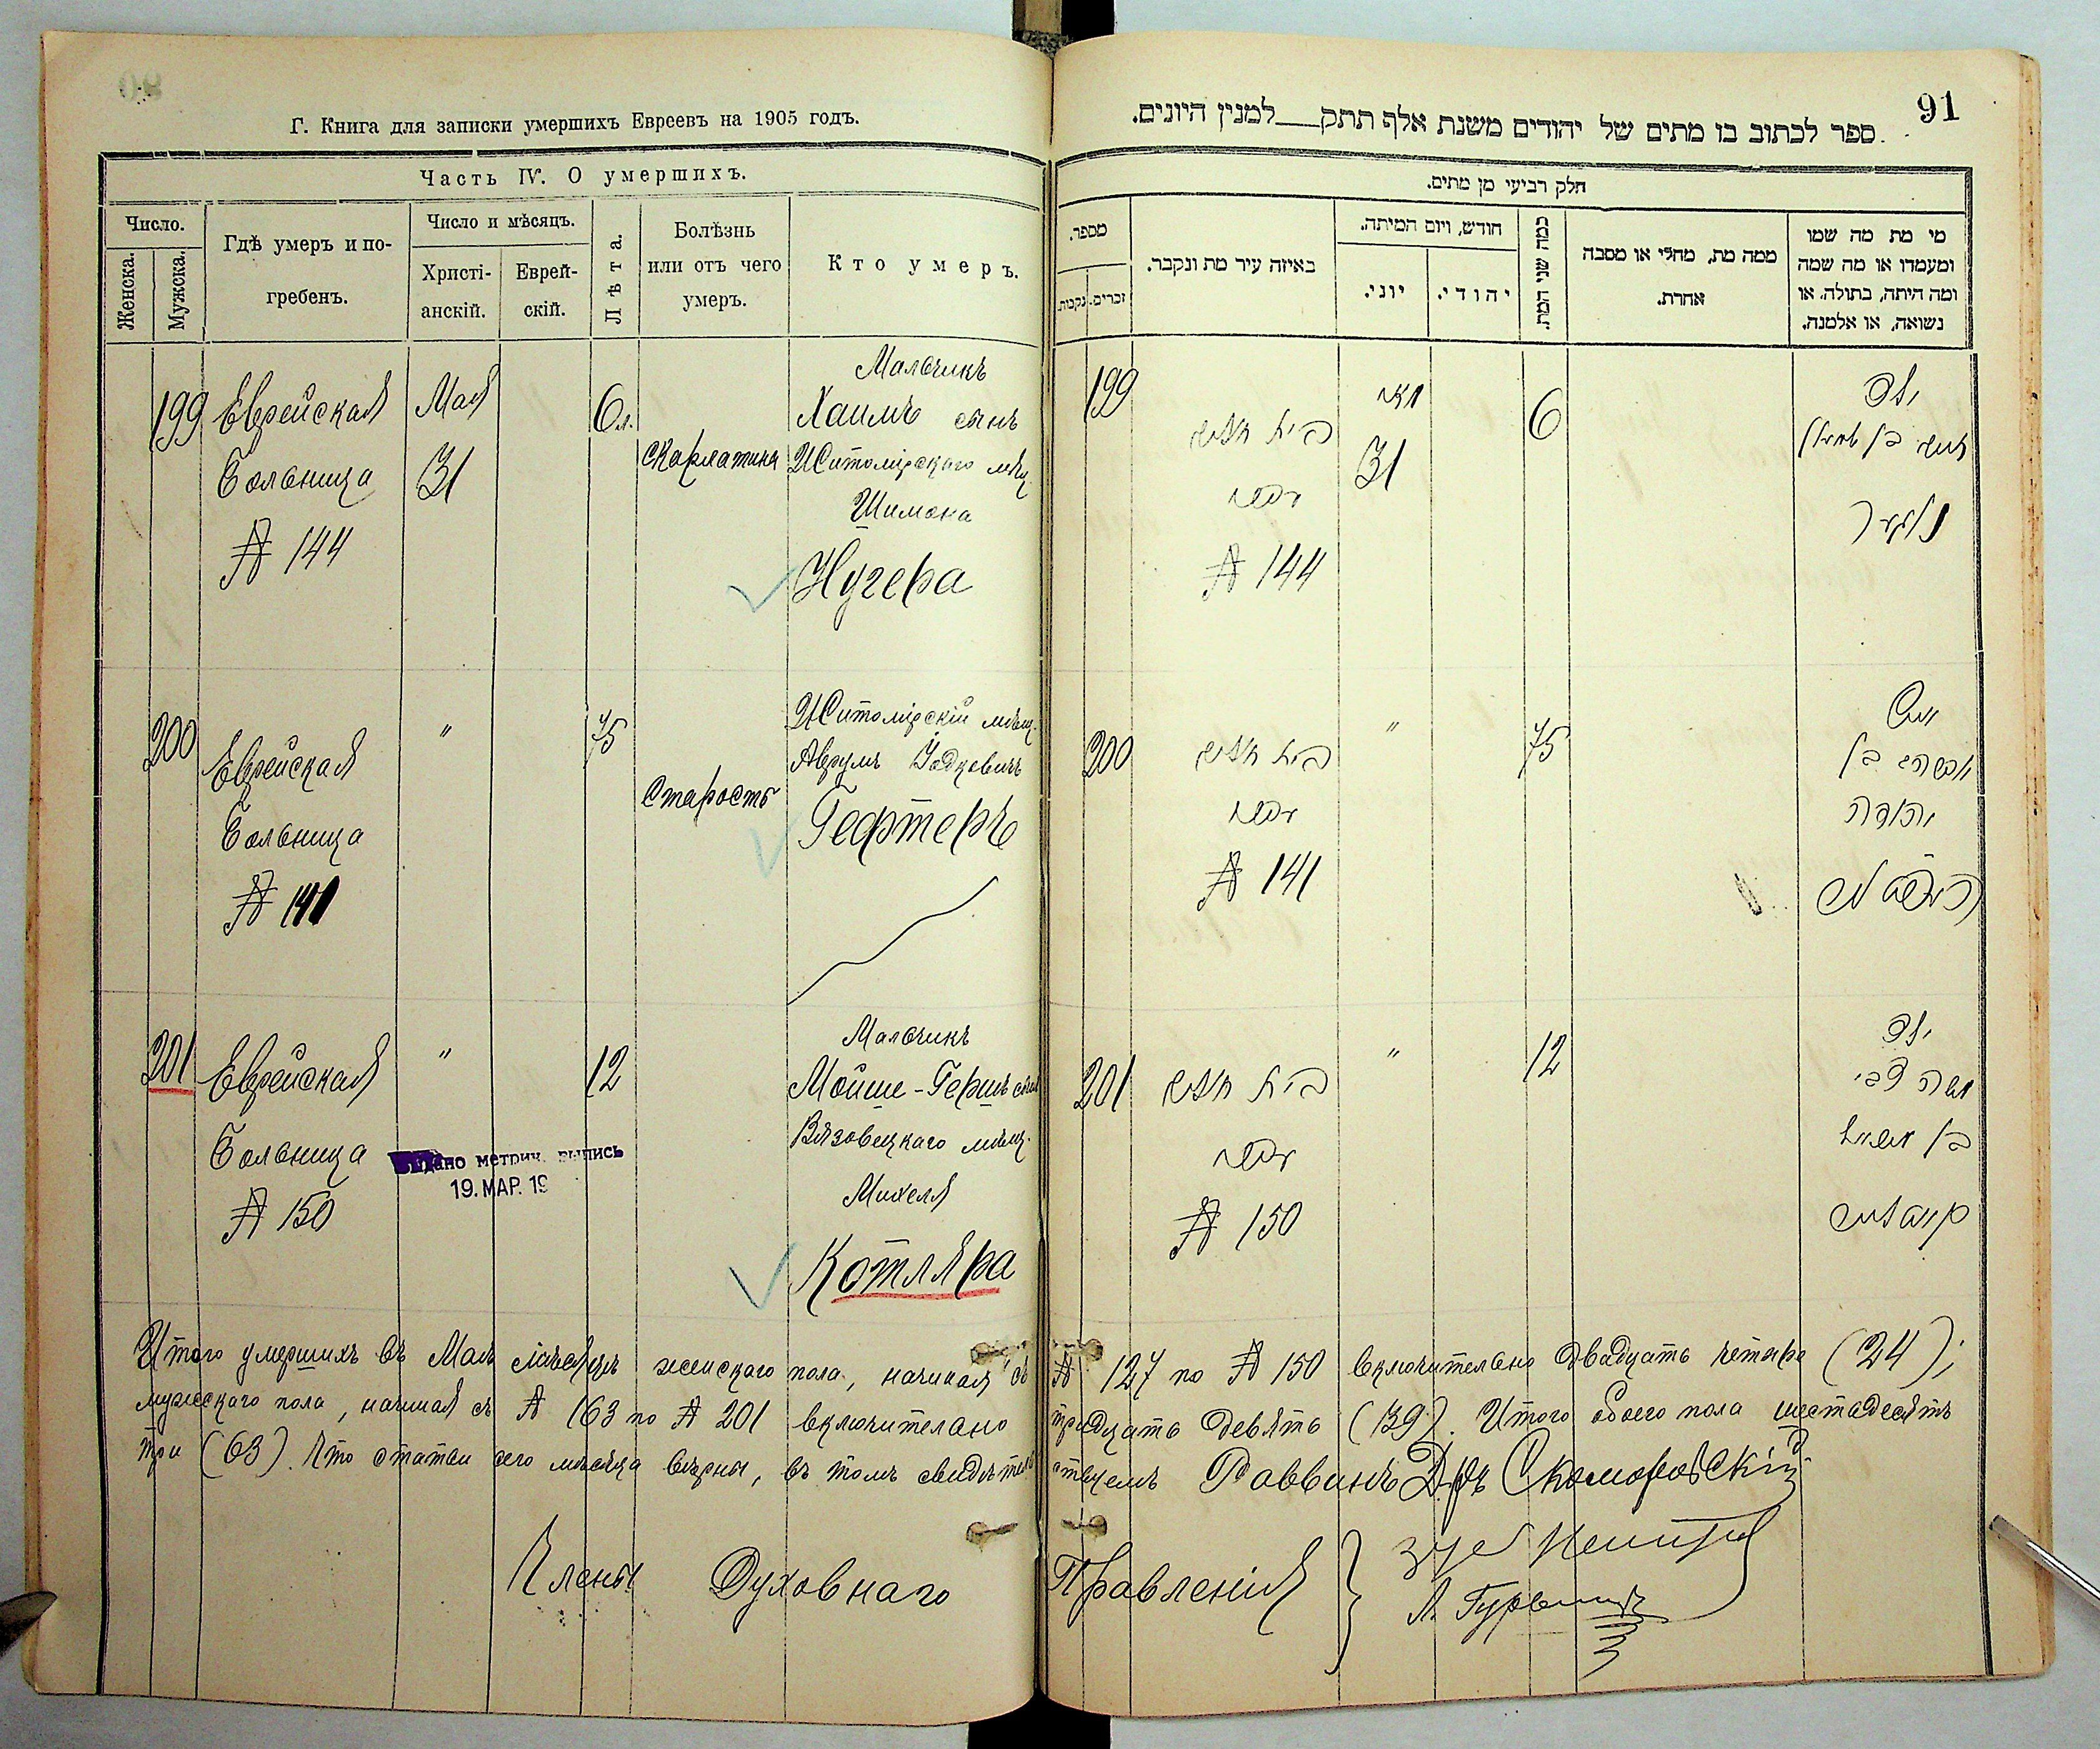 Г. Книга для записки умершихъ Евреевъ на 1905 годъ.
Часть IV. О умершихъ.
Число.
Женска.
Мужска.
Гдѣ умеръ и по-
гребенъ.
Число и мѣсяцъ.
Христі-
анскій.
Еврей-
скій.
Лѣта.
Болѣзнь
или отъ чего
умеръ.
Кто умеръ.
199
Еврейская
Больница
№ 144
Мая
31
6 л.
Скарлатина
Мальчикъ
Хаимъ сынъ
Житомірскаго мѣщ
Шимона
Нугера
200
Еврейская
Больница
№ 141
"
75
Старость
Житомірскій мѣщ.
Аврумъ Іодковичъ
Гефтеръ
201
Еврейская
Больница
№ 150
"
12
Выдано метрич. выпись
19. МАР. 19
Мальчикъ
Мойше-Гершъ сынъ
Вязовецкаго мѣщ.
Михеля
Котляра
91
ספר לכתוב בו מתים של יהודים משנת אלף תתק___למנין היונים.
חלק רביעי מן מתים.
מספר.
זכרים.
נקבות.
באיזה עיר מת ונקבר.
חודש, ויום המיתה.
יוני.
יהודי.
כמה שני המת.
ממה מת, מחלי או מסבה
אחרת.
מי מת מה שמו
ומעמדו או מה שמה
ומה היתה, בתולה, או
נשואה, או אלמנה.
199
בית חולים
№ 144
מאי
31
6
ילד
חיים בן שמעון
נוגער
200
בית חולים
№ 141
"
75
איש
אברהם בן
יהודה
העפטער
201
בית חולים
№ 150
"
12
ילד
משה צבי
בן מיכאל
קוטליאר
Итого умершихъ въ Маѣ мѣсяцѣ женскаго пола, начиная съ № 127 по № 150 включительно двадцать четыре (24);
мужескаго пола, начиная съ № 163 по № 201 включительно тридцать девять (39). Итого обоего пола шестьдесятъ
три (63). Что статьи сего мѣсяца вѣрны, въ томъ свидѣтельствуемъ Раввинъ Д-ръ Скоморовскій
Члены Духовнаго Правленія
Л. Гурвичъ